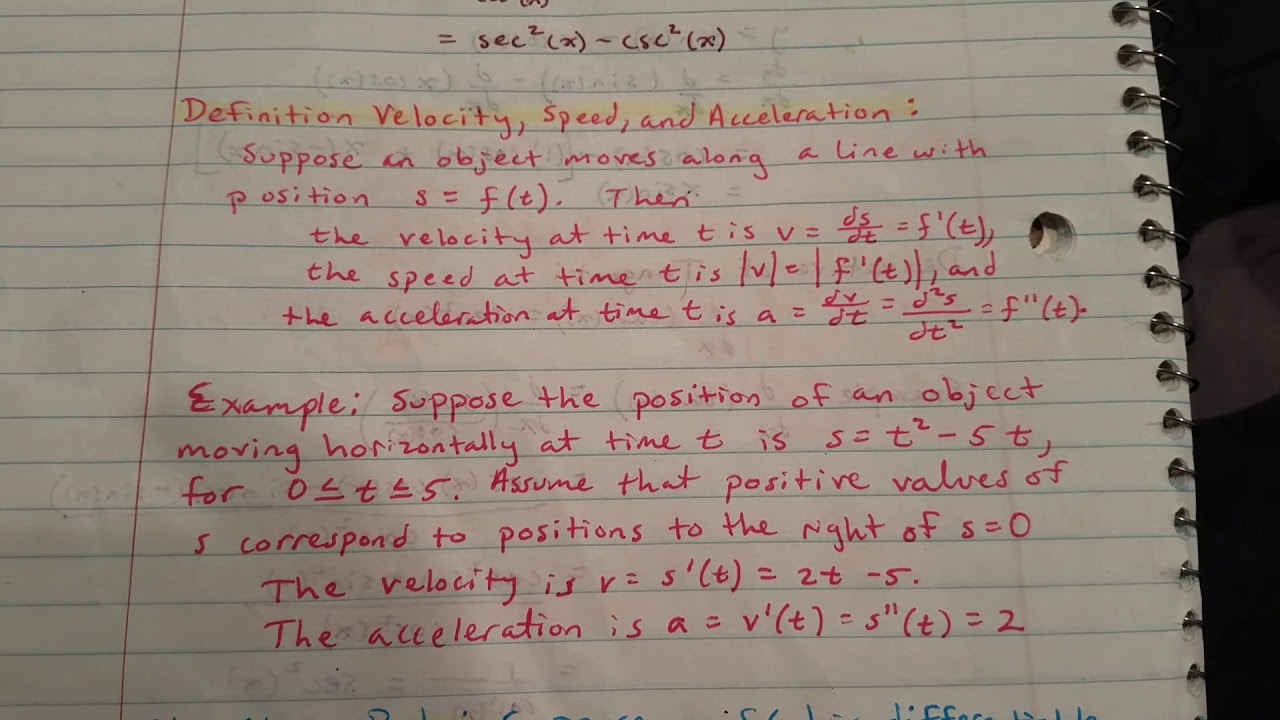 = sec²(x) – csc²(x)
Definition Velocity, Speed, and Acceleration:
Suppose an object moves along a line with
position s = f(t). Then
the velocity at time t is v = ds/dt = f'(t),
the speed at time t is |v| = |f'(t)|, and
the acceleration at time t is a = dv/dt = d²s/dt² = f''(t).
Example: Suppose the position of an object
moving horizontally at time t is s = t² – 5t,
for 0 ≤ t ≤ 5. Assume that positive values of
s correspond to positions to the right of s = 0
The velocity is v = s'(t) = 2t – 5.
The acceleration is a = v'(t) = s''(t) = 2